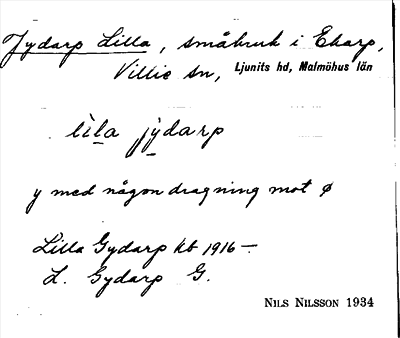 Jydarp Lilla, småbruk i Ekarp,
Villie sn, Ljunits hd, Malmöhus län
lìla jýdarp
y med någon dragning mot ø
Lilla Gydarp kb 1916 –
L. Gydarp G.
NILS NILSSON 1934